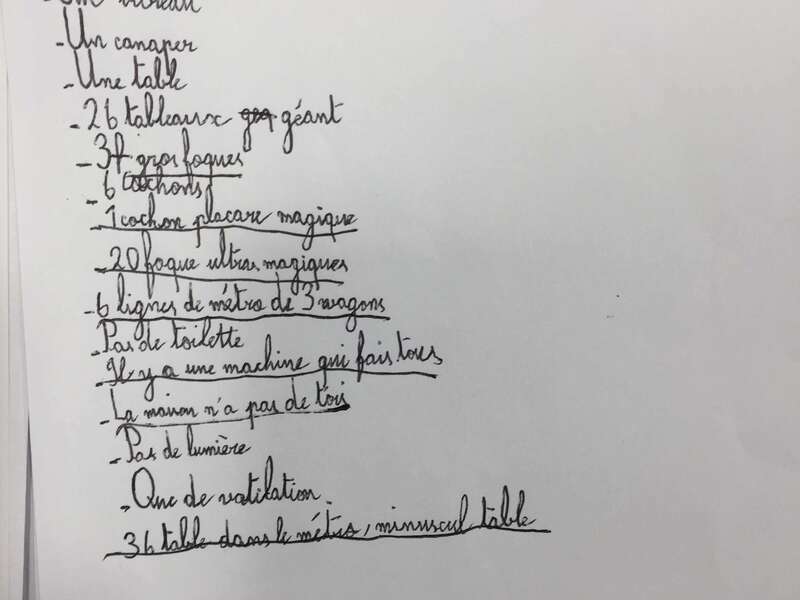 -Un bureau
-Un canaper
-Une table
-26 tableaux géant
-37 gros foques
-6 cochons
-1 cochon placare magique
-20 foque ultras magiques
-6 lignes de métro de 3 wagons
-Pas de toilette
-Il y a une machine qui fais tous
-La maison n'a pas de tois
-Pas de lumière
-Que de vatilation.
-36 table dans le métro, minuscul table